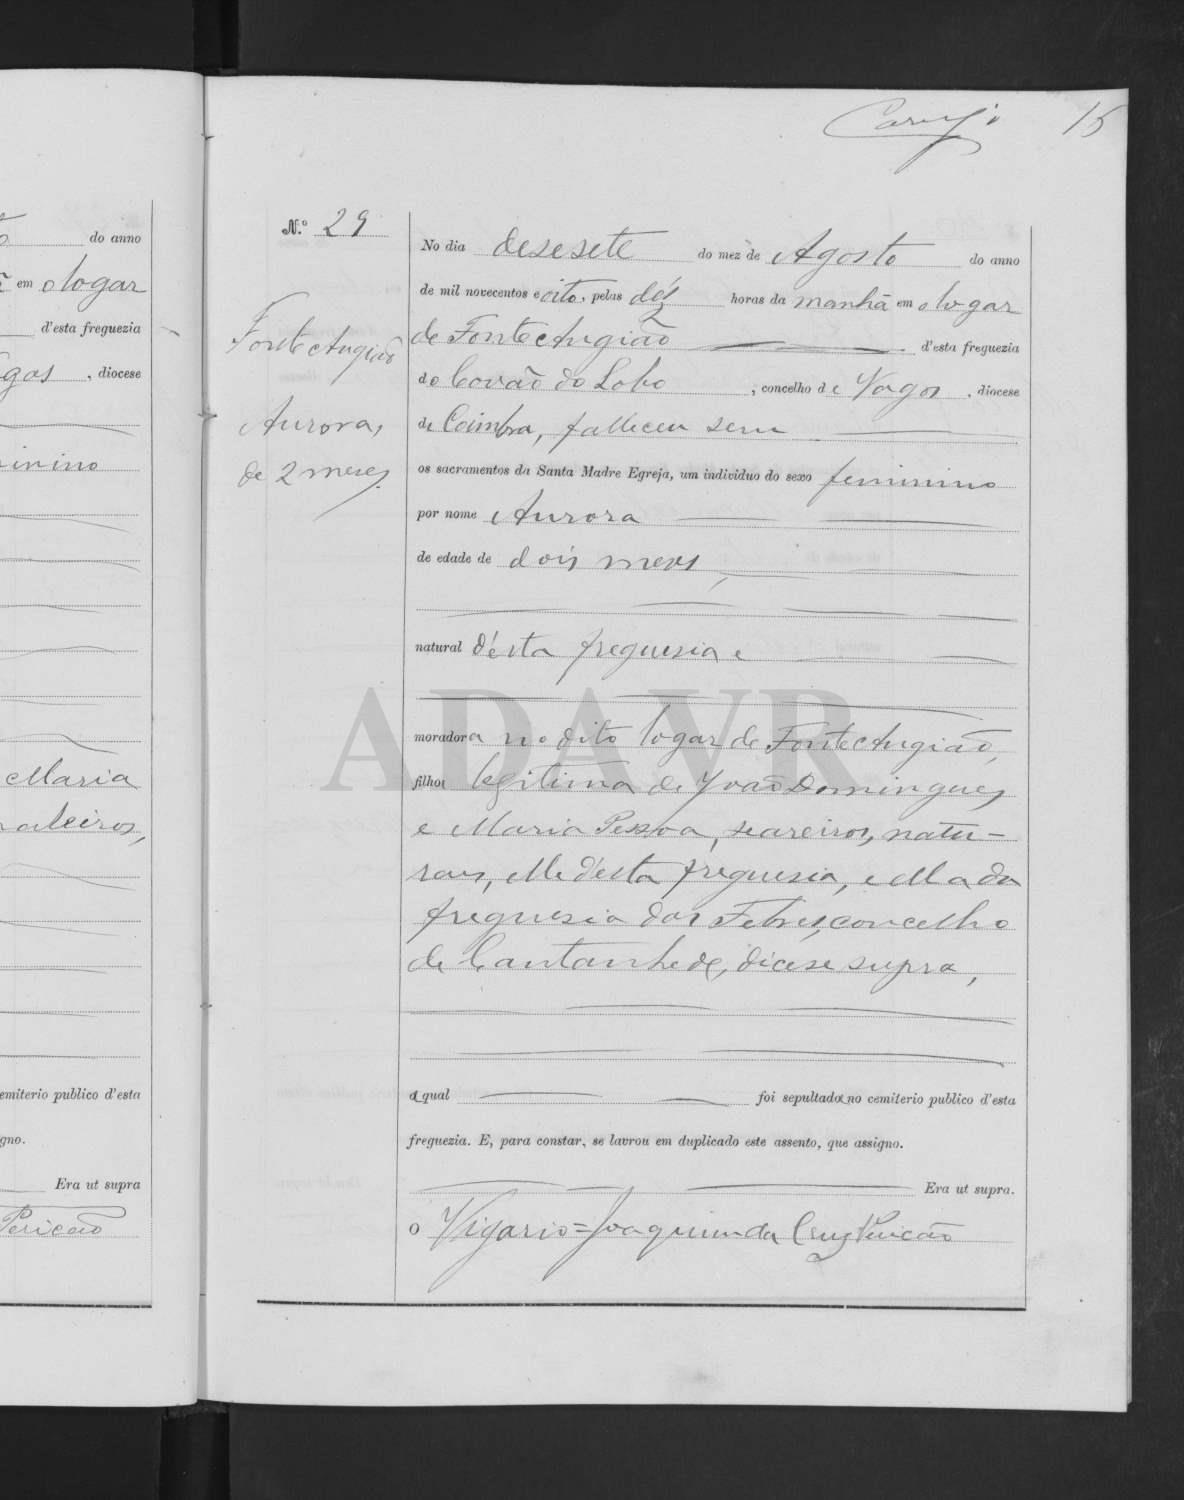 15
do anno
em o logar
d'esta freguezia
gos, diocese
inino
Maria
aleiros,
emiterio publico d'esta
gno.
Era ut supra
Pericão
N.º 29
Fontechugião
Aurora,
de 2 meses.
No dia desesete do mez de Agosto do anno
de mil novecentos e oito, pelas dés horas da manhã em o lugar
de Fontechugião d'esta freguezia
do Covão do Lobo, concelho de Vagos, diocese
de Coimbra, falleceu sem
os sacramentos da Santa Madre Egreja, um individuo do sexo feminino
por nome Aurora
de edade de dois meses,
natural d'esta freguesia e
moradora no dito logar de Fontechugião,
filha legitima de João Domingues
e Maria Pessoa, seareiros, natu-
raes, elle d'esta freguesia, e ella da
freguesia das Febres, concelho
de Cantanhede, dicese supra,
a qual foi sepultada no cemiterio publico d'esta
freguezia. E, para constar, se lavrou em duplicado este assento, que assigno.
Era ut supra.
O Vigario = Joaquim da Cruz Pericão
ADAVR